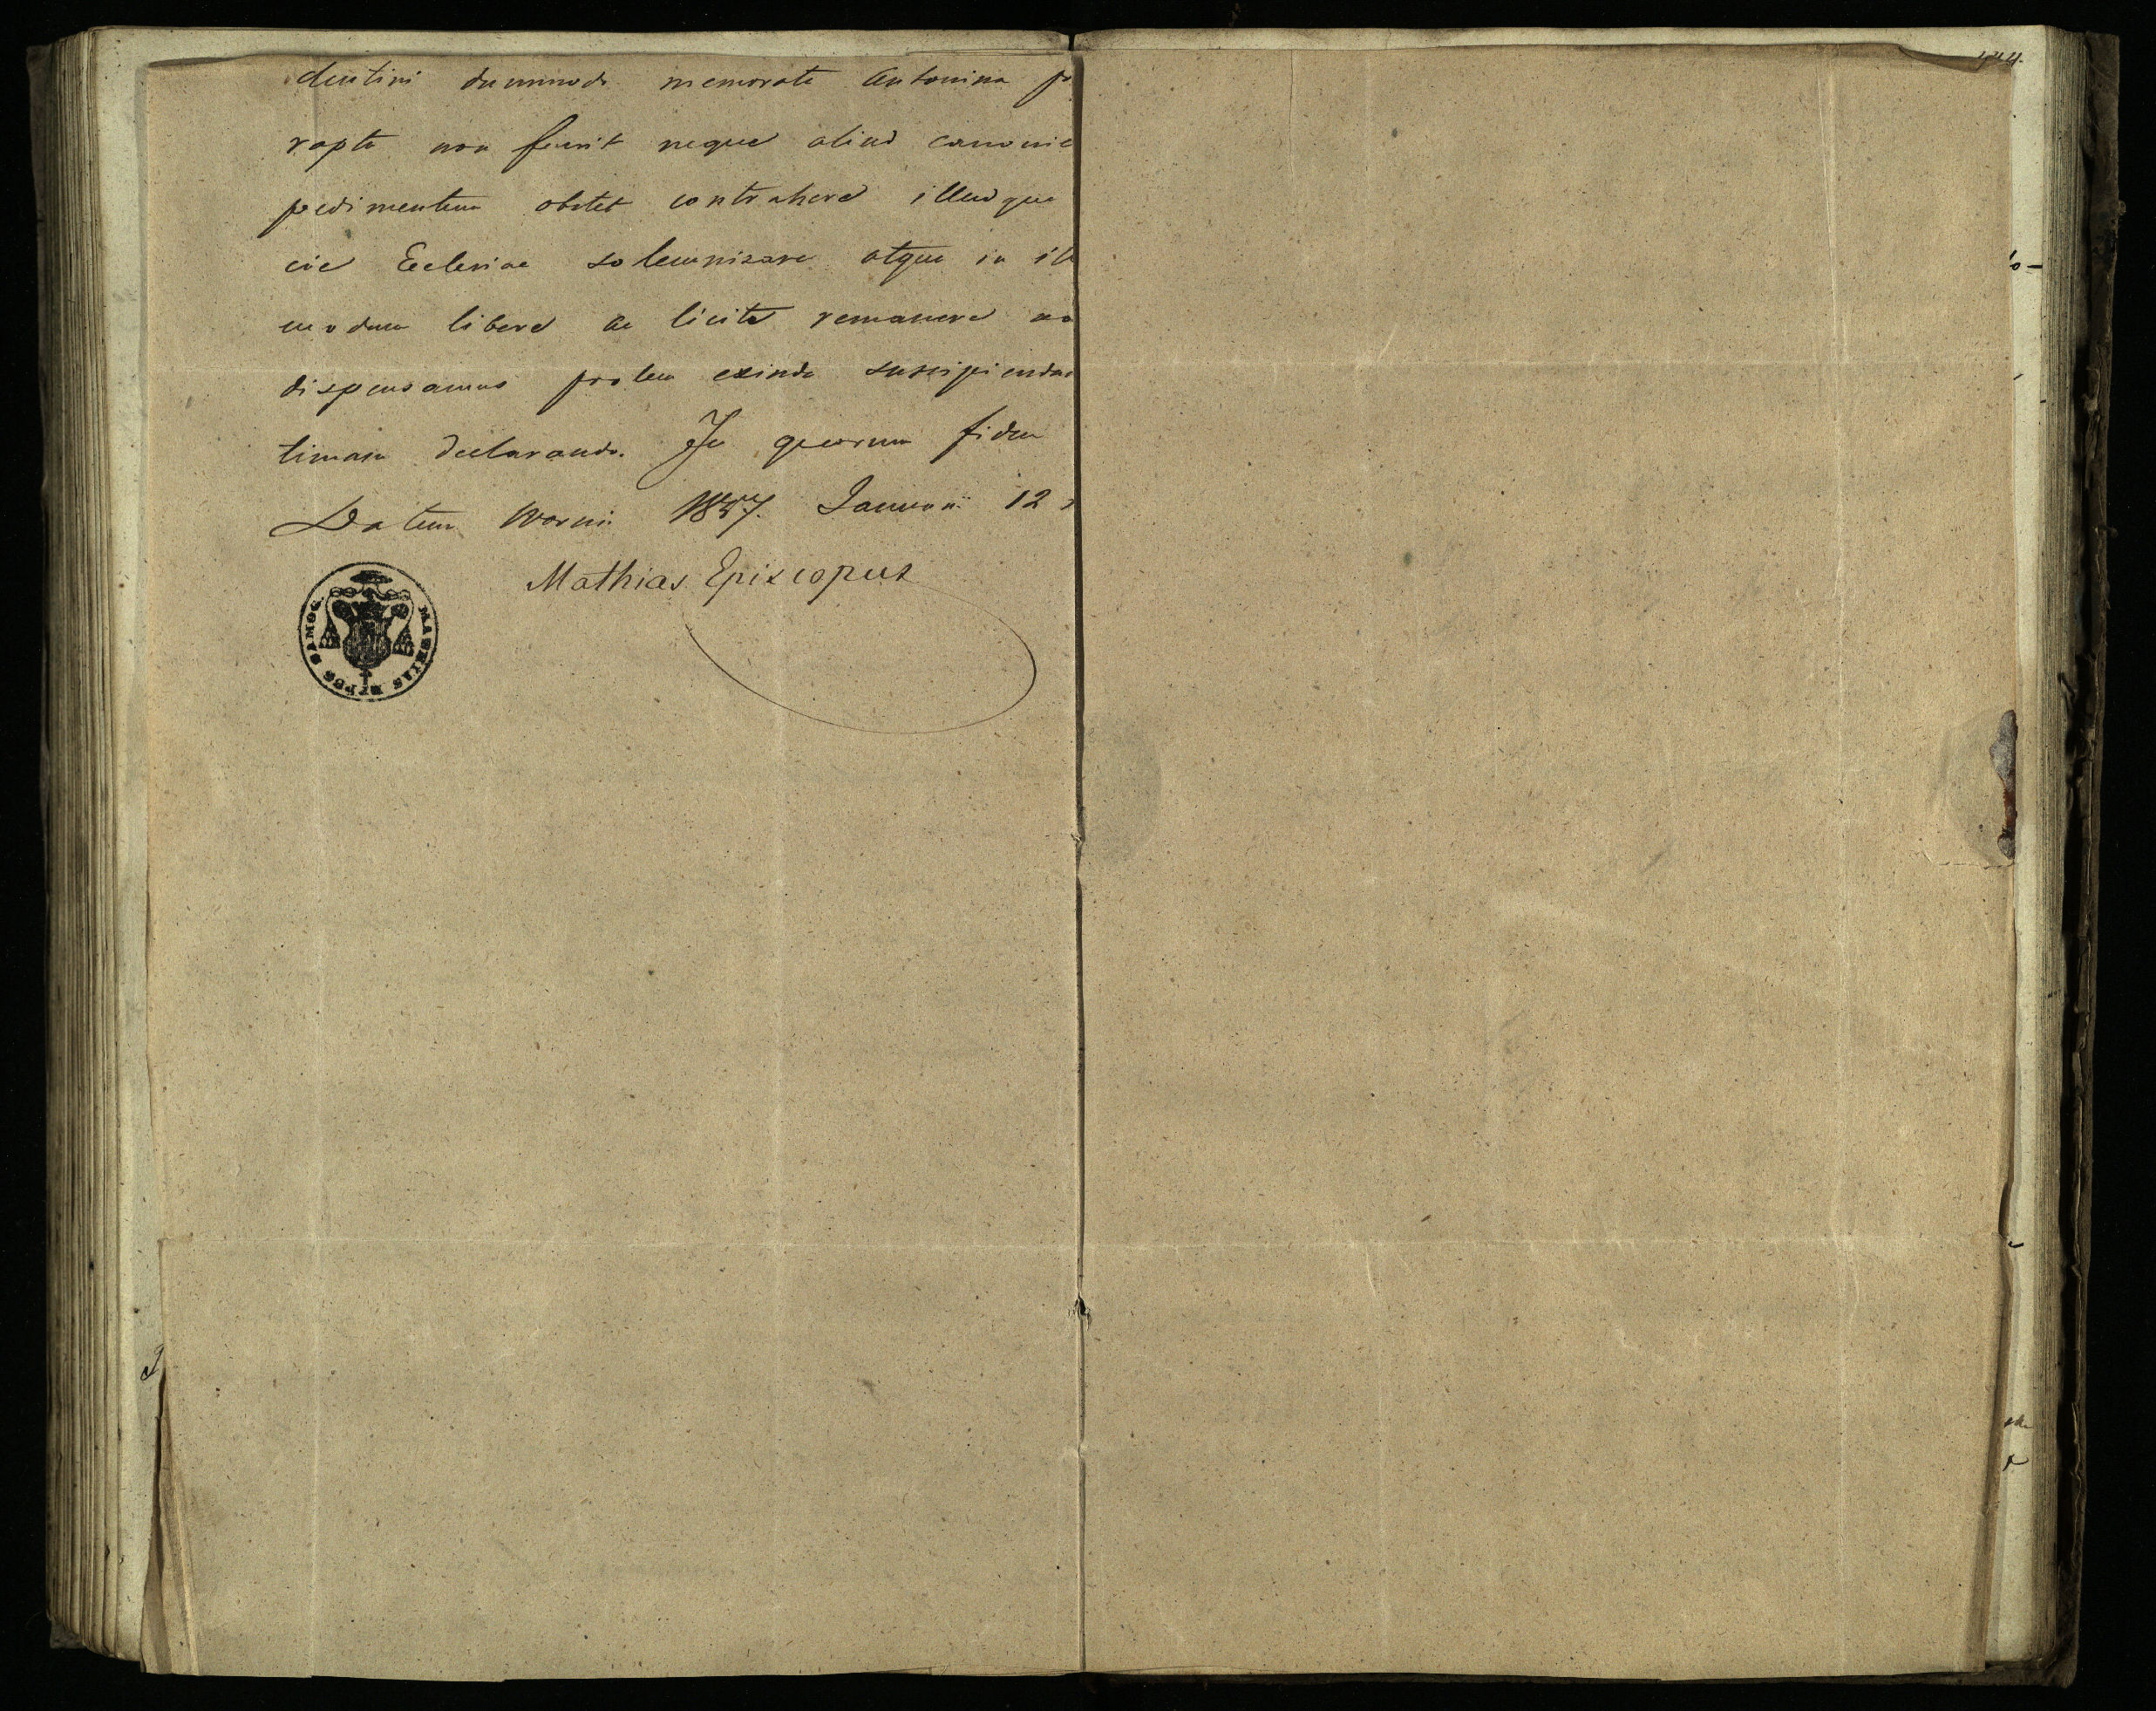 dentini dummodo memorata Antonina p
rapta non fuerit neque aliud canonic
pedimentum obstet contrahere illudque
cie Ecclesiae solemnizare atque in il
modum libere ac licite remanere
dispensamus prolem exinde suscipiendam
timam declarando. In quorum fidem
Datum Worni 1857. Januarii 12
Mathias Episcopus
MATHIAS EPPUS SAMOG.